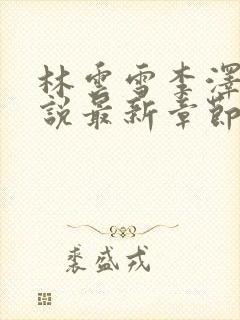 林雲雪李澤
說最新章節
裴盛戎